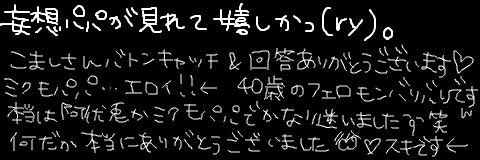 妄想パパが見れて嬉しかっ(ry)。
こましさんバトンキャッチ&回答ありがとうございます♡
ミクモパパ…エロイ!!← 40歳のフェロモンバリバリですw
本当は阿伏兎かミクモパパでかなり迷いましたすっ笑
何だか本当にありがとうございました ♡スキです←